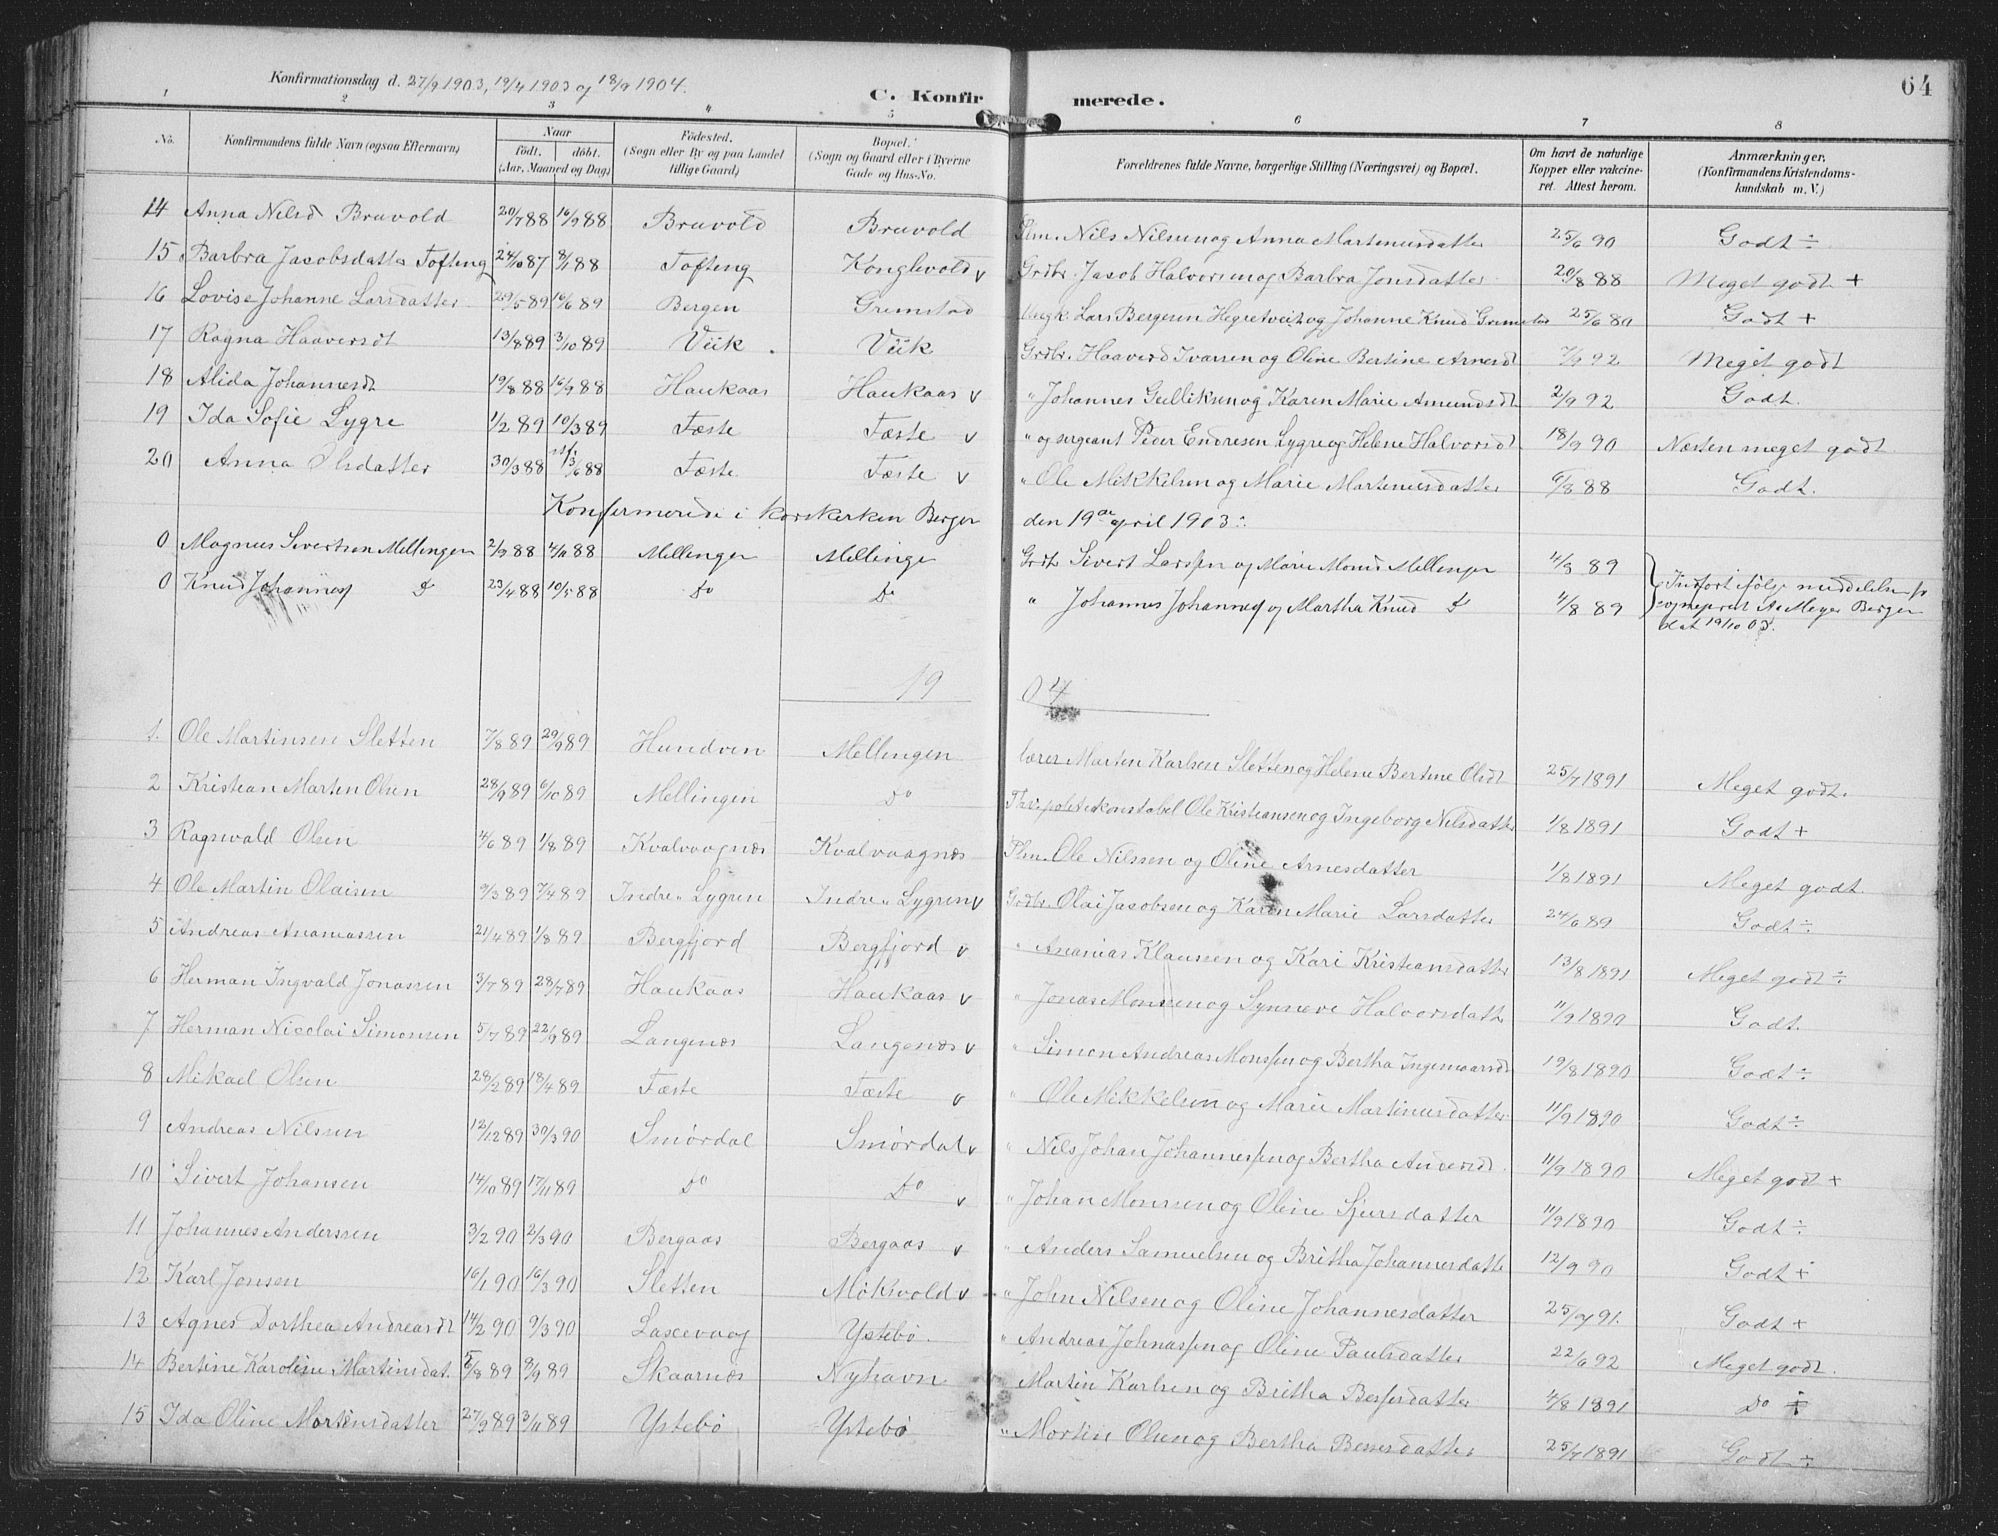 64
Konfirmationsdag d. 27/9 1903, 19/4 1903 og 18/9 1904.
C. Konfirmerede.
1 2 3 4 5 6 7 8
No. Konfirmandens fulde Navn (ogsaa Efternavn) Naar födt. döbt. (Aar, Maaned og Dag) Födested. (Sogn eller By og paa Landet tillige Gaard) Bopæl. (Sogn og Gaard eller i Byerne Gade og Hus-No. Forældrenes fulde Navne, borgerlige Stilling (Næringsvei) og Bopæl. Om havt de naturlige Kopper eller vakcineret. Attest herom. Anmærkninger. (Konfirmandens Kristendomskundskab m. V.)
14 Anna Nilsd Bruvold 20/7 88 16/9 88 Bruvold Bruvold Plm. Nils Nilsen og Anna Martenusdatter 25/6 90 Godt ÷
15 Barbra Jacobsdatter Tofteng 24/10 87 8/1 88 Tofteng Konglevold v Grdbr. Jacob Halvorsen og Barbra Jonsdatter 20/8 88 Meget godt +
16 Lovise Johanne Larsdatter 29/5 89 16/6 89 Bergen Gremstad Ungk. Lars Bergesen Hegretveit og Johanne Knud Gremstad 25/6 80 Godt +
17 Ragna Haaversdt 13/8 89 3/10 89 Viik Viik Grdbr. Haaverd Ivarsen og Oline Bertine Arnesdt 7/9 92 Meget godt
18 Alida Johannesdt 19/8 88 16/9 88 Haukaas Haukaas v " Johannes Gulliksen og Karen Marie Amundsdt 2/9 92 Godt.
19 Ida Sofie Lygre 1/2 89 10/3 89 Fæste Fæste v " og sergeant Peder Endresen Lygre og Helene Halvorsdt 18/9 90 Næsten meget godt
20 Anna Olsdatter 30/3 88 3/6 88 Fæste Fæste v " Ole Mikkelsen og Marie Martenusdatter 6/8 88 Godt.
Konfirmerede i korskirken Bergen den 19de april 1903:
0 Magnus Sivertsen Mellingen 2/9 88 4/11 88 Mellingen Mellinge Grdb Sivert Larssen og Marie Monsd Mellingen 4/8 89
0 Knud Johannes Do 23/4 88 10/5 88 Do Do " Johannes Johannes og Martha Knud Do 4/8 89 Indført ifølge meddelelse fr sogneprest A. Meyer Bergen dat 19/10 03.
19 04
1. Ole Martinsen Sletten 7/8 89 29/9 89 Hundven Mellingen lærer Marten Karlsen Sletten og Helene Bertine Olsdt 25/7 1891 Meget godt.
2 Kristian Martin Olsen 28/9 89 6/10 89 Mellingen Do Fhv. politikonstabel Ole Kristiansen og Ingeborg Nilsdatter 1/8 1891 Godt +
3 Ragnvald Olsen 4/6 89 1/8 89 Kvalvaagnæs Kvalvaagnæs Plm. Ole Nilssen og Oline Arnesdatter 1/8 1891 Meget godt.
4 Ole Martin Olaisen 9/3 89 7/4 89 Indre Lygren Indre Lygren v Grdbr. Olai Jacobsen og Karen Marie Larsdatter 24/6 89 Godt ÷
5 Andreas Ananiassen 21/4 89 1/8 89 Bergfjord Bergfjord v " Ananias Klausen og Kari Kristiansdatter 13/8 1891 Meget godt ÷
6 Herman Ingvald Jonassen 3/7 89 28/7 89 Haukaas Haukaas v " Jonas Monsen og Synneve Halvorsdatt 11/9 1890 Godt.
7 Herman Nicolai Simonsen 5/7 89 22/9 89 Langenæs Langenæs v " Simon Andreas Monssen og Bertha Ingemaarsdt 19/8 1890 Godt ÷
8 Mikael Olsen 28/2 89 18/4 89 Fæste Fæste v " Ole Mikkelsen og Marie Martinusdatter 11/9 1890 Godt ÷
9 Andreas Nilssen 12/12 89 30/3 90 Smørdal Smørdal v " Nils Johan Johannessen og Bertha Andersdt. 11/9 1890 Meget godt +
10 Sivert Johansen 14/10 89 17/11 89 Do Do v " Johan Monsen og Oline Sjursdatter 11/9 1890 Godt ÷
11 Johannes Anderssen 3/2 90 2/3 90 Bergaas Bergaas v " Anders Samuelsen og Britha Johannesdatte 12/9 90 Godt +
12 Karl Jonsen 16/1 90 16/3 90 Sletten Mökvold v " John Nilsen og Oline Johannesdatter 25/7 91. Godt +
13 Agnes Dorthea Andreasdt 14/2 90 9/3 90 Laxevaag Ystebø. " Andreas Johnassen og Oline Paulsdatter 22/6 92 Meget godt.
14 Bertine Karoline Martinsdat. 5/8 89 9/9 89 Skaarnæs Nyhavn Martin Karlsen og Britha Bessesdatter 4/8 1891 Do ÷
15 Ida Oline Martinsdatter 27/9 89 3/11 89 Ystebø Ystebø " Mortin Olsen og Bertha Bessesdatter 25/7 1891 Godt ÷